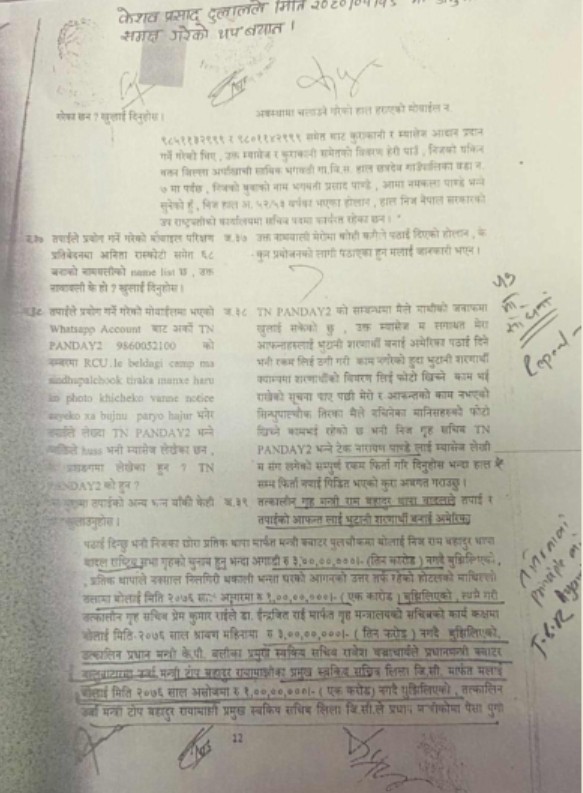 केशव प्रसाद दुलालले मिति २०८०/०१/१५ मा
समक्ष गरेको थप बयान ।
गरेका छन ? खुलाई दिनुहोस ।
अवस्थामा चलाउने गरेको हाल हराएको मोबाईल न.
९८५११३२९९९ र ९८०११४२९९९ समेत बाट कुराकानी र म्यासेज आदान प्रदान
गर्ने गरेको थिए , उक्त म्यासेज र कुराकानी समेतको विवरण हेरी पाउँ , निजको
वतन जिल्ला अर्घाखाँची साविक भगवती गा.वि.स. हाल छत्रदेव गाउँपालिका वडा न.
७ मा पर्दछ , निजको बुवाको नाम भगवती प्रसाद पाण्डे , आमा नमकला पाण्डे भन्ने
सुनेको हुँ , निज हाल अ. ५२/५३ वर्षका भएका होलान , हाल निज नेपाल सरकारको
उप राष्ट्रपतीको कार्यालयमा सचिव पदमा कार्यरत रहेका छन । "
स.३७ तपाईले प्रयोग गर्ने गरेको मोबाइल परिक्षण
प्रतिवेदनमा अमिता रास्कोटी समेत ६८
जनाको नामवलीको name list छ , उक्त
नामावली के हो ? खुलाई दिनुहोस ।
ज.३७ उक्त नामवाली मेरोमा कोही कसैले पठाई दिएको होलान , के
कुन प्रयोजनको लागी पठाएका हुन मलाई जानकारी भएन ।
स.३८ तपाईले प्रयोग गर्ने गरेको मोबाईलमा भएको
Whatsapp Account बाट अर्को TN
PANDAY2 9860052100 को
नम्बरमा RCU.le beldagi camp ma
sindhupalchook tiraka manxe haru
ko photo khicheko vanne notice
aayeko xa bujnu paryo hajur भनेर
तपाईले लेख्दा TN PANDAY2 भन्ने
व्यक्तिले huss भनी म्यासेज लेखेका छन ,
के प्रसङ्गमा लेखेका हुन ? TN
PANDAY2 को हुन ?
ज.३८ TN PANDAY2 को सम्बन्धमा मैले माथीको जवाफमा
खुलाई सकेको छु , उक्त म्यासेज म लगायत मेरा
आफन्तहरुलाई भुटानी शरणार्थी बनाई अमेरिका पठाई दिने
भनी रकम लिई ठगी गरी काम नगरेको हुदा भुटानी शरणार्थी
क्याम्पमा शरणार्थीको विवरण लिई फोटो खिच्ने काम भई
राखेको सूचना पाए पछी मेरो र आफन्तको काम नभएको
सिन्धुपाल्चोक तिरका मैले नचिनेका मानिसहरुको फोटो
खिच्ने कामभई रहेको छ भनी निज गृह सचिव TN
PANDAY2 भन्ने टेक नारायण पाण्डे लाई म्यासेज लेखी
म संग लगेको सम्पुर्ण रकम फिर्ता गरि दिनुहोस भन्दा हाल
सम्म फिर्ता नपाई पिडित भएको कुरा अवगत गराउछु ।
तपाईको अन्य भन्न बाँकी केही
खुलाउनुहोस ।
ज.३९ तत्कालीन गृह मन्त्री राम बहादुर थापा बादलले तपाई र
तपाईको आफन्त लाई भुटानी शरणार्थी बनाई अमेरिका
पठाई दिन्छु भनी निजका छोरा प्रतिक थापा मार्फत मन्त्री क्वाटर पुलचोकमा बोलाई निज राम बहादुर थापा
बादल राष्ट्रिय सभा गृहको चुनाब हुनु भन्दा अगाडी रु ३,००,००,०००।- (तिन करोड ) नगदै बुझिलिएको ,
, प्रतिक थापाले नक्साल निलगिरी थकाली भन्सा घरको आगनको उत्तर तर्फ रहेको होटलको माथिल्लो
तलामा बोलाई मिति २०७६ साल रु १,००,००,०००।- ( एक करोड ) बुझिलिएको , त्यसै गरी
तत्कालीन गृह सचिव प्रेम कुमार राईले डा. ईन्द्रजित राई मार्फत गृह मन्त्रालयको सचिवको कार्य कक्षमा
बोलाई मिति-२०७६ साल श्रावण महिनामा रु ३,००,००,०००।- ( तिन करोड ) नगदै बुझिलिएको,
तत्कालिन प्रधान मन्त्री के.पी. वलीका प्रमुख स्वकिय सचिव राजेश बज्राचार्यले प्रधानमन्त्री क्वाटर
बालुवाटारमा उर्जा मन्त्री टोप बहादुर रायमाझीका प्रमुख स्वकिय सचिव लिला जि.सी. मार्फत मलाई
बोलाई मिति २०७६ साल असोजमा रु १,००,००,०००।- ( एक करोड ) नगदै बुझिलिएको , तत्कालिन
उर्जा मन्त्री टोप बहादुर रायमाझी प्रमुख स्वकिय सचिव लिला जि.सी.ले
22